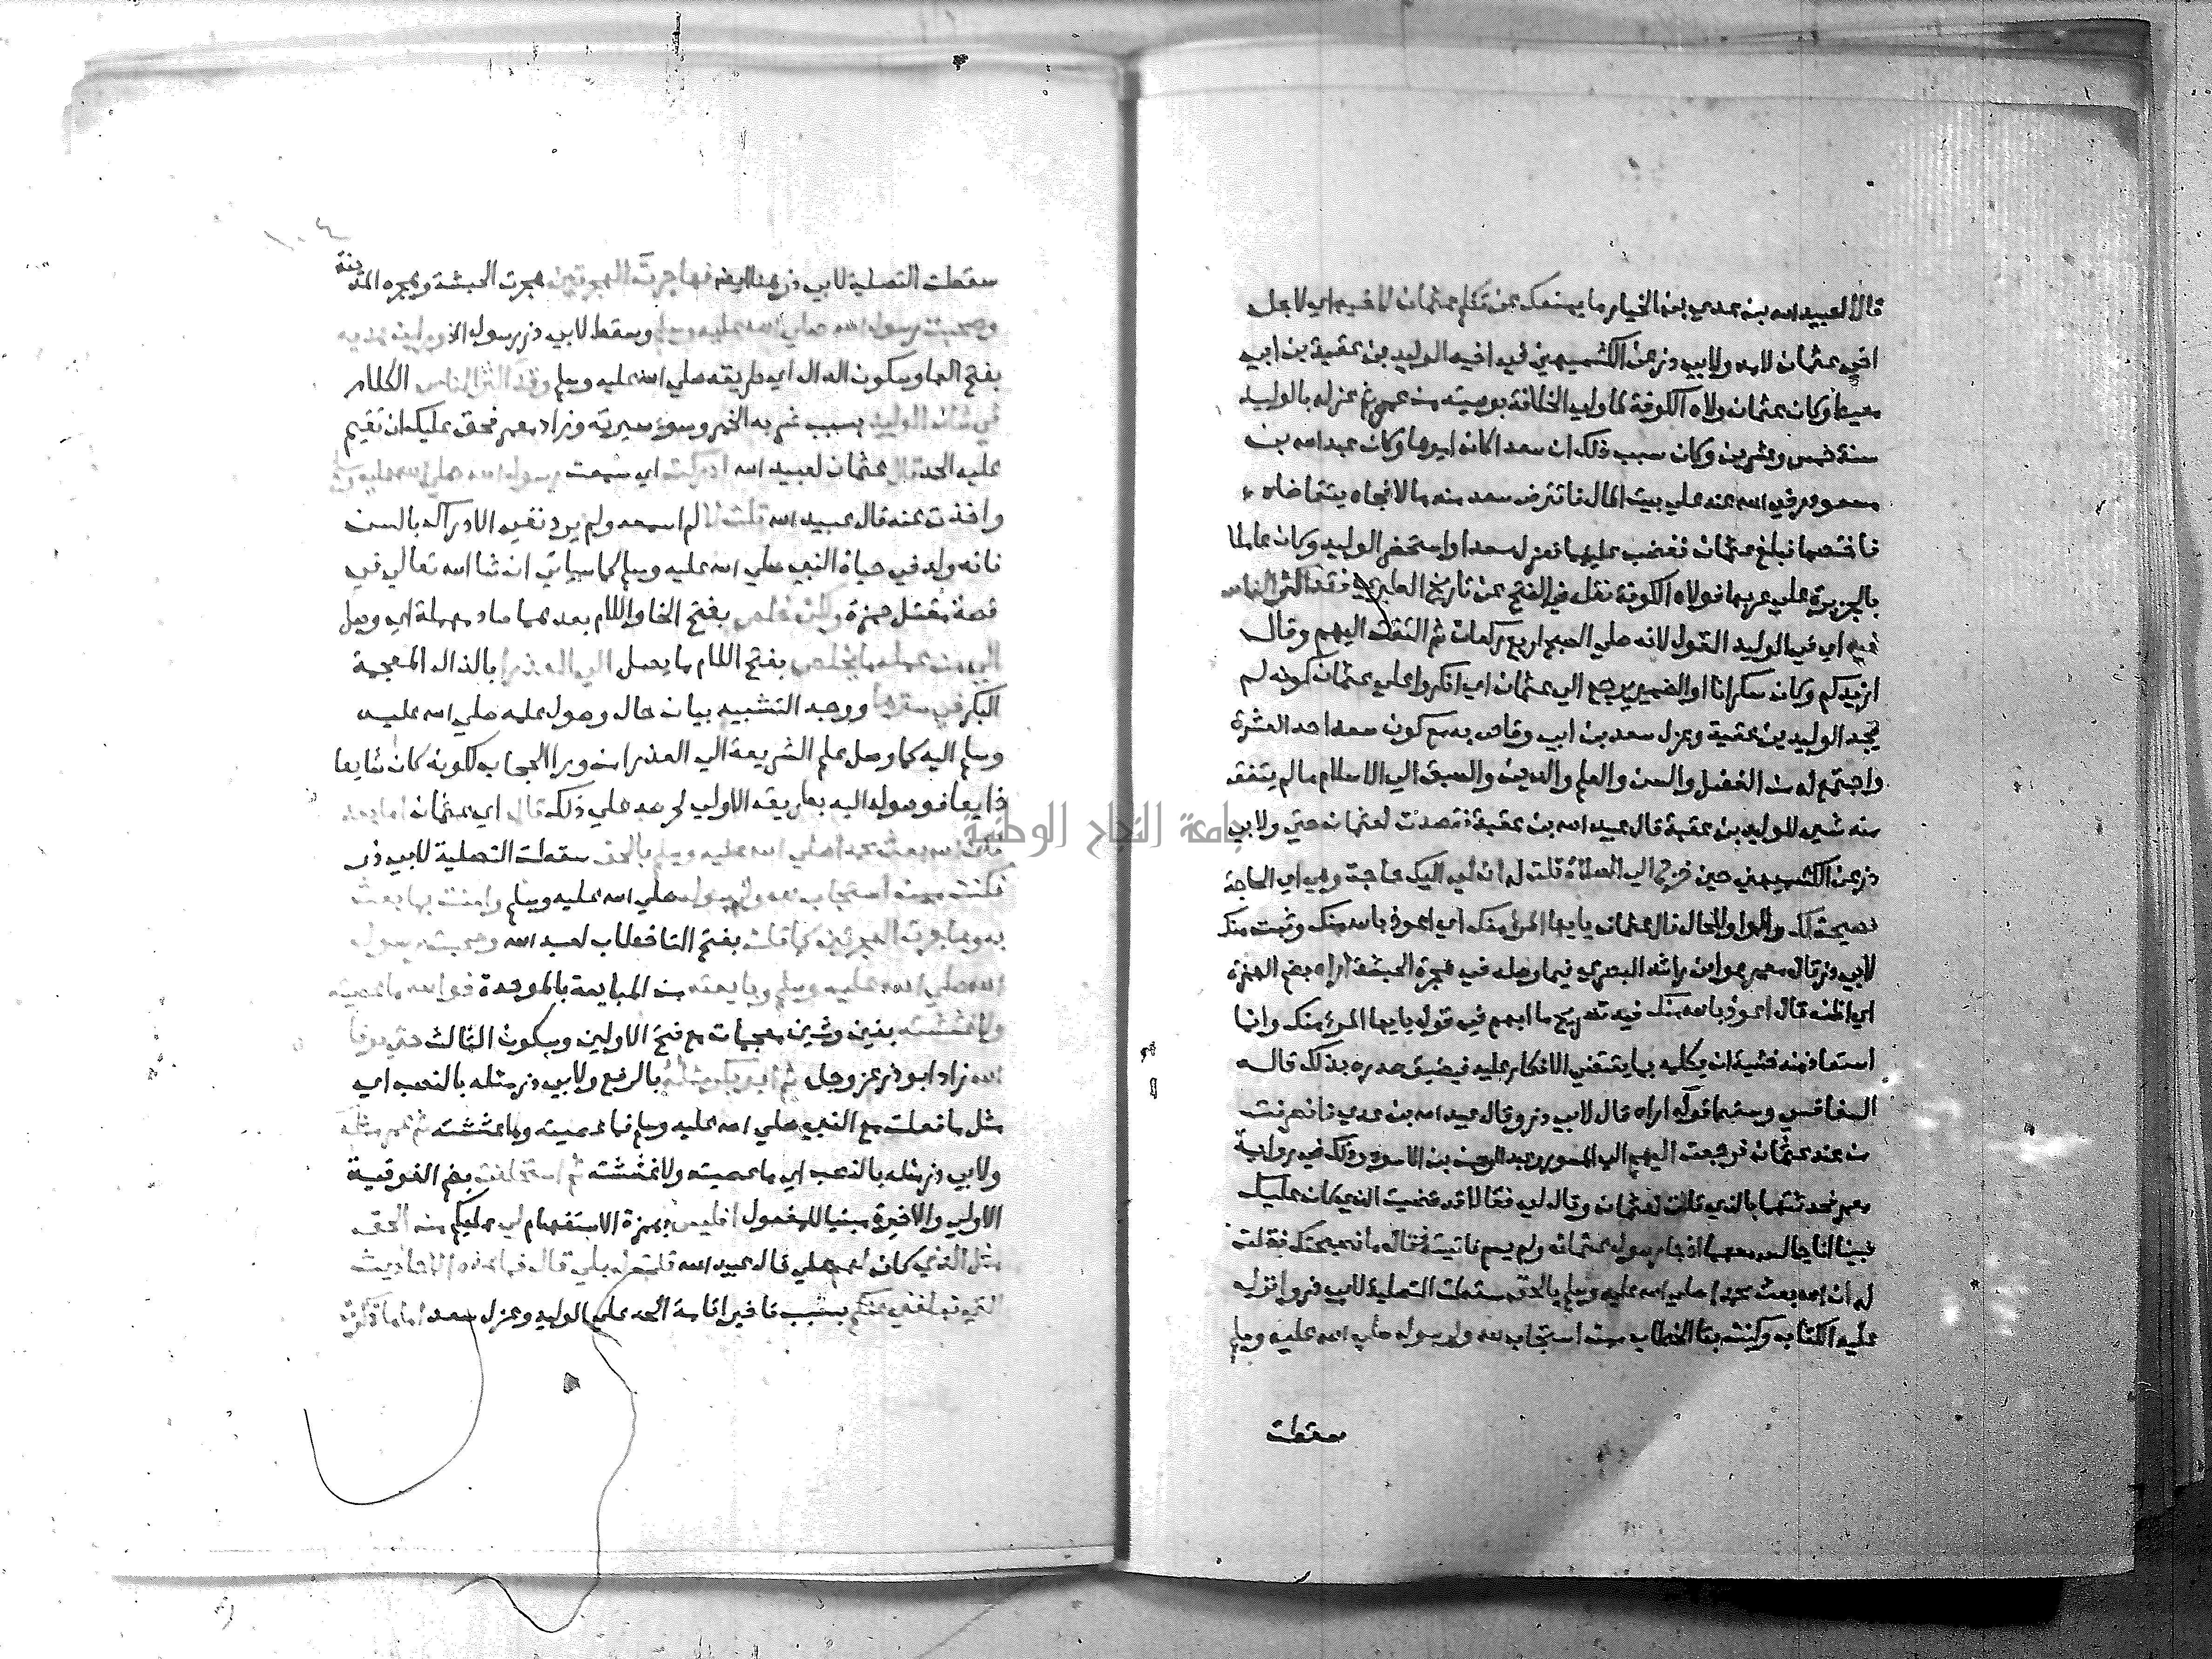 قالا لعبيد الله بن عدي بن الخيار ما يمنعك ان تكلم عثمان لاخيه اي لاجل
اخي عثمان لامه ولابي ذر عن الكشميهني في اخيه الوليد بن عقبة بن ابي
معيط وكان عثمان ولاه الكوفة لما ولي الخلافة بوصية من عمر ثم عزله بالوليد
سنة خمس وعشرين وكان سبب ذلك ان سعدا كان اميرها وكان عبد الله بن
مسعود رضي الله عنه علي بيت المال فاقترض سعد منه مالا فجاه يتقاضاه
فاختصما فبلغ عثمان فغضب عليهما فعزل سعدا واستحضر الوليد وكان عاملا
بالجزيرة علي عربها فولاه الكوفة نقله في الفتح عن تاريخ الطبري فقد اكثر الناس
فيه اي في الوليد القول لانه صلي الصبح اربع ركعات ثم التفت اليهم وقال
ازيدكم وكان سكرانا او الضمير يرجع الي عثمان اي انكروا علي عثمان كونه لم
يحد الوليد بن عقبة وعزل سعد بن ابي وقاص به مع كون سعد احد العشرة
واجتمع له من الفضل والسن والعلم والدين والسبق الي الاسلام ما لم يتفق
منه شي للوليد بن عقبة قال عبيد الله بن عقبة فقصدت لعثمان حتي ولابي
ذر عن الكشميهني حين خرج الي الصلاة قلت له ان لي اليك حاجة وهي اي الحاجة
نصيحة لك والواو للحال قال عثمان يا ايها المرء منك اي اعوذ بالله منك وثبت منك
لابي ذر قال معمر هو ابن راشد البصري فيما وصله في هجرة الحبشة اراه بضم الهمزة
اي اظنه قال اعوذ بالله منك فيه تصريح ما ابهم في قوله يا ايها المرء منك وانما
استعاذ منه خشية ان يكلمه بما يقتضي الانكار عليه فيضيق صدره بذلك قاله
السفاقسي وسقط قوله اراه قال لابي ذر وقال عبيد الله بن عدي فانصرفت
من عند عثمان فرجعت اليهم الي المسور وعبد الرحمن بن الاسود وذلك في رواية
معمر فحدثتهما بالذي قلت لعثمان وقال لي فقالا قد قضيت الذي كان عليك
فبينا انا جالس معهما اذ جا رسول عثمان ولم يسم فاتيته فقال ما نصيحتك فقلت
له ان الله بعث محمدا صلي الله عليه وسلم بالحق سقطت التصلية لابي ذر وانزل
عليه الكتاب وكنت بتا الخطاب ممن استجاب لله ولرسوله صلي الله عليه وسلم
سقطت
١٠٤
سقطت التصلية لابي ذر هنا ايضا فهاجرت الهجرتين هجرت الحبشة وهجره المدينة
وصحبت رسول الله صلي الله عليه وسلم وسقط لابي ذر رسول الخ ورايت هديه
بفتح الها وسكون الدال اي طريقه صلي الله عليه وسلم وقد اكثر الناس الكلام
في شان الوليد بسبب شربه الخمر وسوء سيرته وزاد معمر فحق عليك ان تقيم
عليه الحد قال عثمان لعبيد الله ادركت اي سمعت رسول الله صلي الله عليه وسلم
واخذت عنه قال عبيد الله قلت لا لم اسمعه ولم يرد نفي الادراك بالسن
فانه ولد في حياة النبي صلي الله عليه وسلم كما سياتي ان شا الله تعالي في
قصة مقتل حمزة ولكن خلص بفتح الخا واللام بعدها صاد مهملة اي وصل
الي من علمه ما يخلص بفتح اللام ما يصل الي العذرا بالذال المعجمة
البكر في سترها ووجه التشبيه بيان حال وصول علمه صلي الله عليه
وسلم اليه كما وصل علم الشريعة الي العذرا من ورا الحجاب لكونه كان شايعا
ذايعا فوصوله اليه بطريق الاولي لحرصه علي ذلك قال اي عثمان اما بعد
فان الله بعث محمدا صلي الله عليه وسلم بالحق سقطت التصلية لابي ذر
فكنت ممن استجاب لله ولرسوله صلي الله عليه وسلم وامنت بما بعث
به وهاجرت الهجرتين كما قلت بفتح التا خطاب لعبيد الله وصحبت رسول
الله صلي الله عليه وسلم وبايعته من المبايعة بالموحدة فوالله ما عصيته
ولا غششته بغين وشين معجمات مع فتح الاولين وسكون الثالث حتي توفا
الله زاد ابو ذر عز وجل ثم ابو بكر مثله بالرفع ولابي ذر مثله بالنصب اي
مثل ما فعلت مع النبي صلي الله عليه وسلم فما عصيته وما غششته ثم عمر مثله
ولابي ذر مثله بالنصب اي ما عصيته ولا غششته ثم استخلفت بضم الفوقية
الاولي والاخيرة مبنيا للمفعول افليس بهمزة الاستفهام لي عليكم من الحق
مثل الذي كان لهم علي قال عبيد الله قلت له بلي قال فما هذه الاحاديث
التي تبلغني عنكم بسبب تاخير اقامة الحد علي الوليد وعزل سعد اما ما ذكرت
جامعة النجاح الوطنية